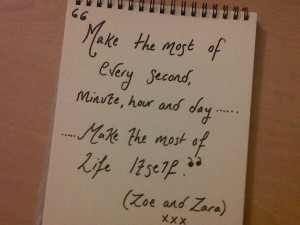 “Make the most of
every second,
minute, hour and day ......
..... Make the most of
Life Itself.”
(Zoe and Zara)
xxx